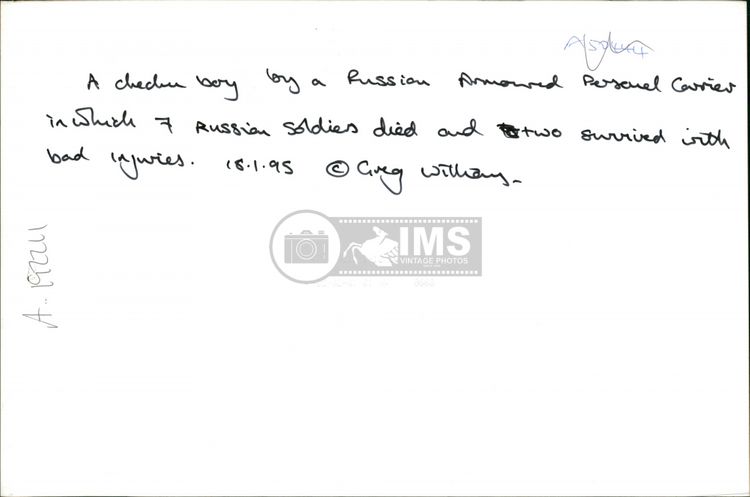 A chechen boy by a Russian Armoured Personel Carrier
in which 7 Russian soldiers died and two survived with
bad injuries. 18.1.95 © Greg Williams
IMS
VINTAGE PHOTOS